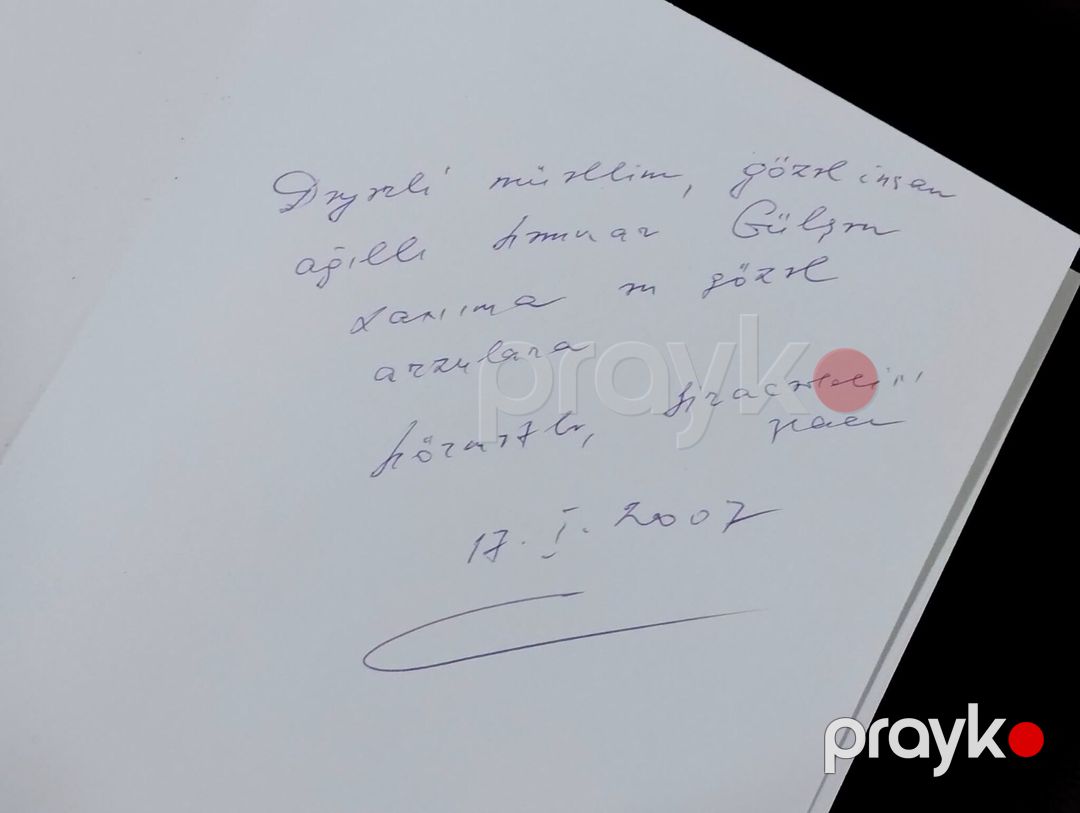 Dəyərli müəllim, gözəl insan
ağıllı həmkar Gülşən
xanıma ən gözəl
arzularla
hörmətlə,
17.I.2007
prayk
prayk